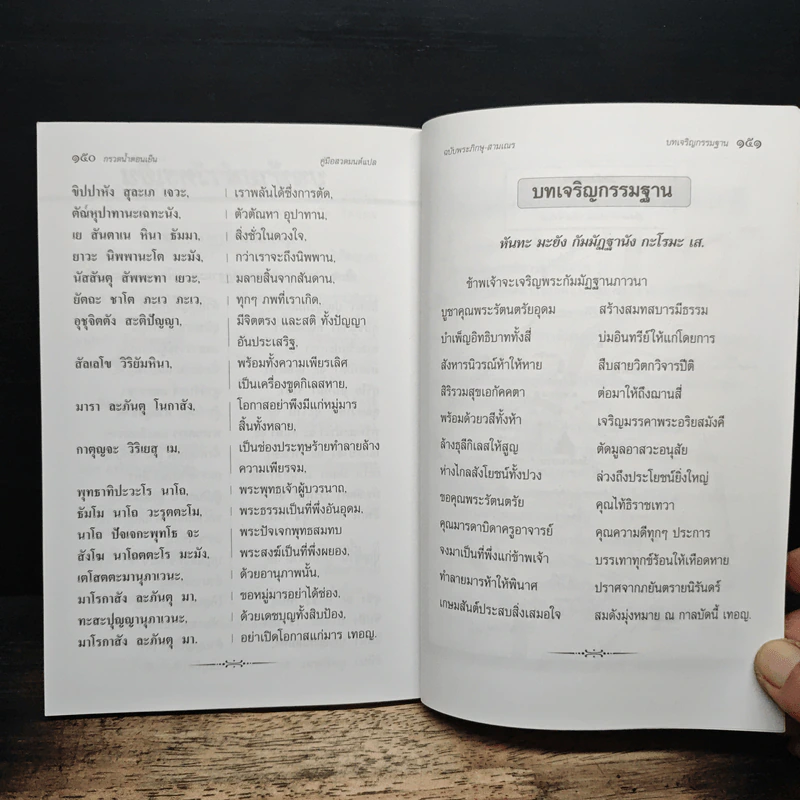 ๑๕๐ กรวดน้ำตอนเย็น คู่มือสวดมนต์แปล
ขิปปาหัง สุละเภ เจวะ, เราพลันได้ซึ่งการตัด,
ตัณ๎หุปาทานะเฉทะนัง, ตัวตัณหา อุปาทาน,
เย สันตาเน หินา ธัมมา, สิ่งชั่วในดวงใจ,
ยาวะ นิพพานะโต มะมัง, กว่าเราจะถึงนิพพาน,
นัสสันตุ สัพพะทา เยวะ, มลายสิ้นจากสันดาน,
ยัตถะ ชาโต ภะเว ภะเว, ทุกๆ ภพที่เราเกิด,
อุชุจิตตัง สะติปัญญา, มีจิตตรง และสติ ทั้งปัญญา
อันประเสริฐ,
สัลเลโข วิริยัมหินา, พร้อมทั้งความเพียรเลิศ
เป็นเครื่องขูดกิเลสหาย,
มารา ละภันตุ โนกาสัง, โอกาสอย่าพึงมีแก่หมู่มาร
สิ้นทั้งหลาย,
กาตุญจะ วิริเยสุ เม, เป็นช่องประทุษร้ายทำลายล้าง
ความเพียรจม,
พุทธาทิปะวะโร นาโถ, พระพุทธเจ้าผู้บวรนาถ,
ธัมโม นาโถ วะรุตตะโม, พระธรรมเป็นที่พึ่งอันอุดม,
นาโถ ปัจเจกะพุทโธ จะ พระปัจเจกพุทธสมทบ
สังโฆ นาโถตตะโร มะมัง, พระสงฆ์เป็นที่พึ่งผยอง,
เตโสตตะมานุภาเวนะ, ด้วยอานุภาพนั้น,
มาโรกาสัง ละภันตุ มา, ขอหมู่มารอย่าได้ช่อง,
ทะสะปุญญานุภาเวนะ, ด้วยเดชบุญทั้งสิบป้อง,
มาโรกาสัง ละภันตุ มา. อย่าเปิดโอกาสแก่มาร เทอญ.
ฉบับพระภิกษุ-สามเณร บทเจริญกรรมฐาน ๑๕๑
บทเจริญกรรมฐาน
หันทะ มะยัง กัมมัฏฐานัง กะโรมะ เส.
ข้าพเจ้าจะเจริญพระกัมมัฏฐานภาวนา
บูชาคุณพระรัตนตรัยอุดม สร้างสมทสบารมีธรรม
บำเพ็ญอิทธิบาททั้งสี่ บ่มอินทรีย์ให้แก่โดยการ
สังหารนิวรณ์ห้าให้หาย สืบสายวิตกวิจารปีติ
สิริรวมสุขเอกัคคตา ต่อมาให้ถึงฌานสี่
พร้อมด้วยวสีทั้งห้า เจริญมรรคาพระอริยสมังคี
ล้างธุลีกิเลสให้สูญ ตัดมูลอาสวะอนุสัย
ห่างไกลสังโยชน์ทั้งปวง ล่วงถึงประโยชน์ยิ่งใหญ่
ขอคุณพระรัตนตรัย คุณไท้ธิราชเทวา
คุณมารดาบิดาครูอาจารย์ คุณความดีทุกๆ ประการ
จงมาเป็นที่พึ่งแก่ข้าพเจ้า บรรเทาทุกข์ร้อนให้เหือดหาย
ทำลายมารห้าให้พินาศ ปราศจากภยันตรายนิรันดร์
เกษมสันต์ประสบสิ่งเสมอใจ สมดังมุ่งหมาย ณ กาลบัดนี้ เทอญ.